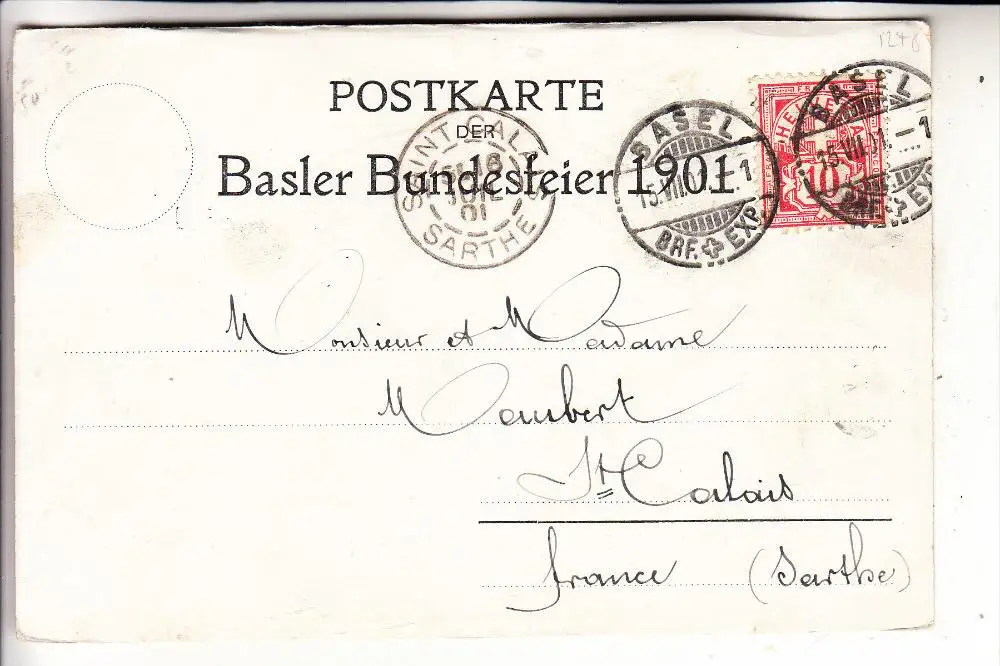 1276
POSTKARTE
DER
Basler Bundesfeier 1901.
SAINT-CALAIS
16
JUIL
01
SARTHE
BASEL
15.VII. 1
BRF. EXP.
BASEL
15.VII.01. – 1
BRF. EXP.
10
Monsieur et Madame
Maubert
St Calais
france (Sarthe)